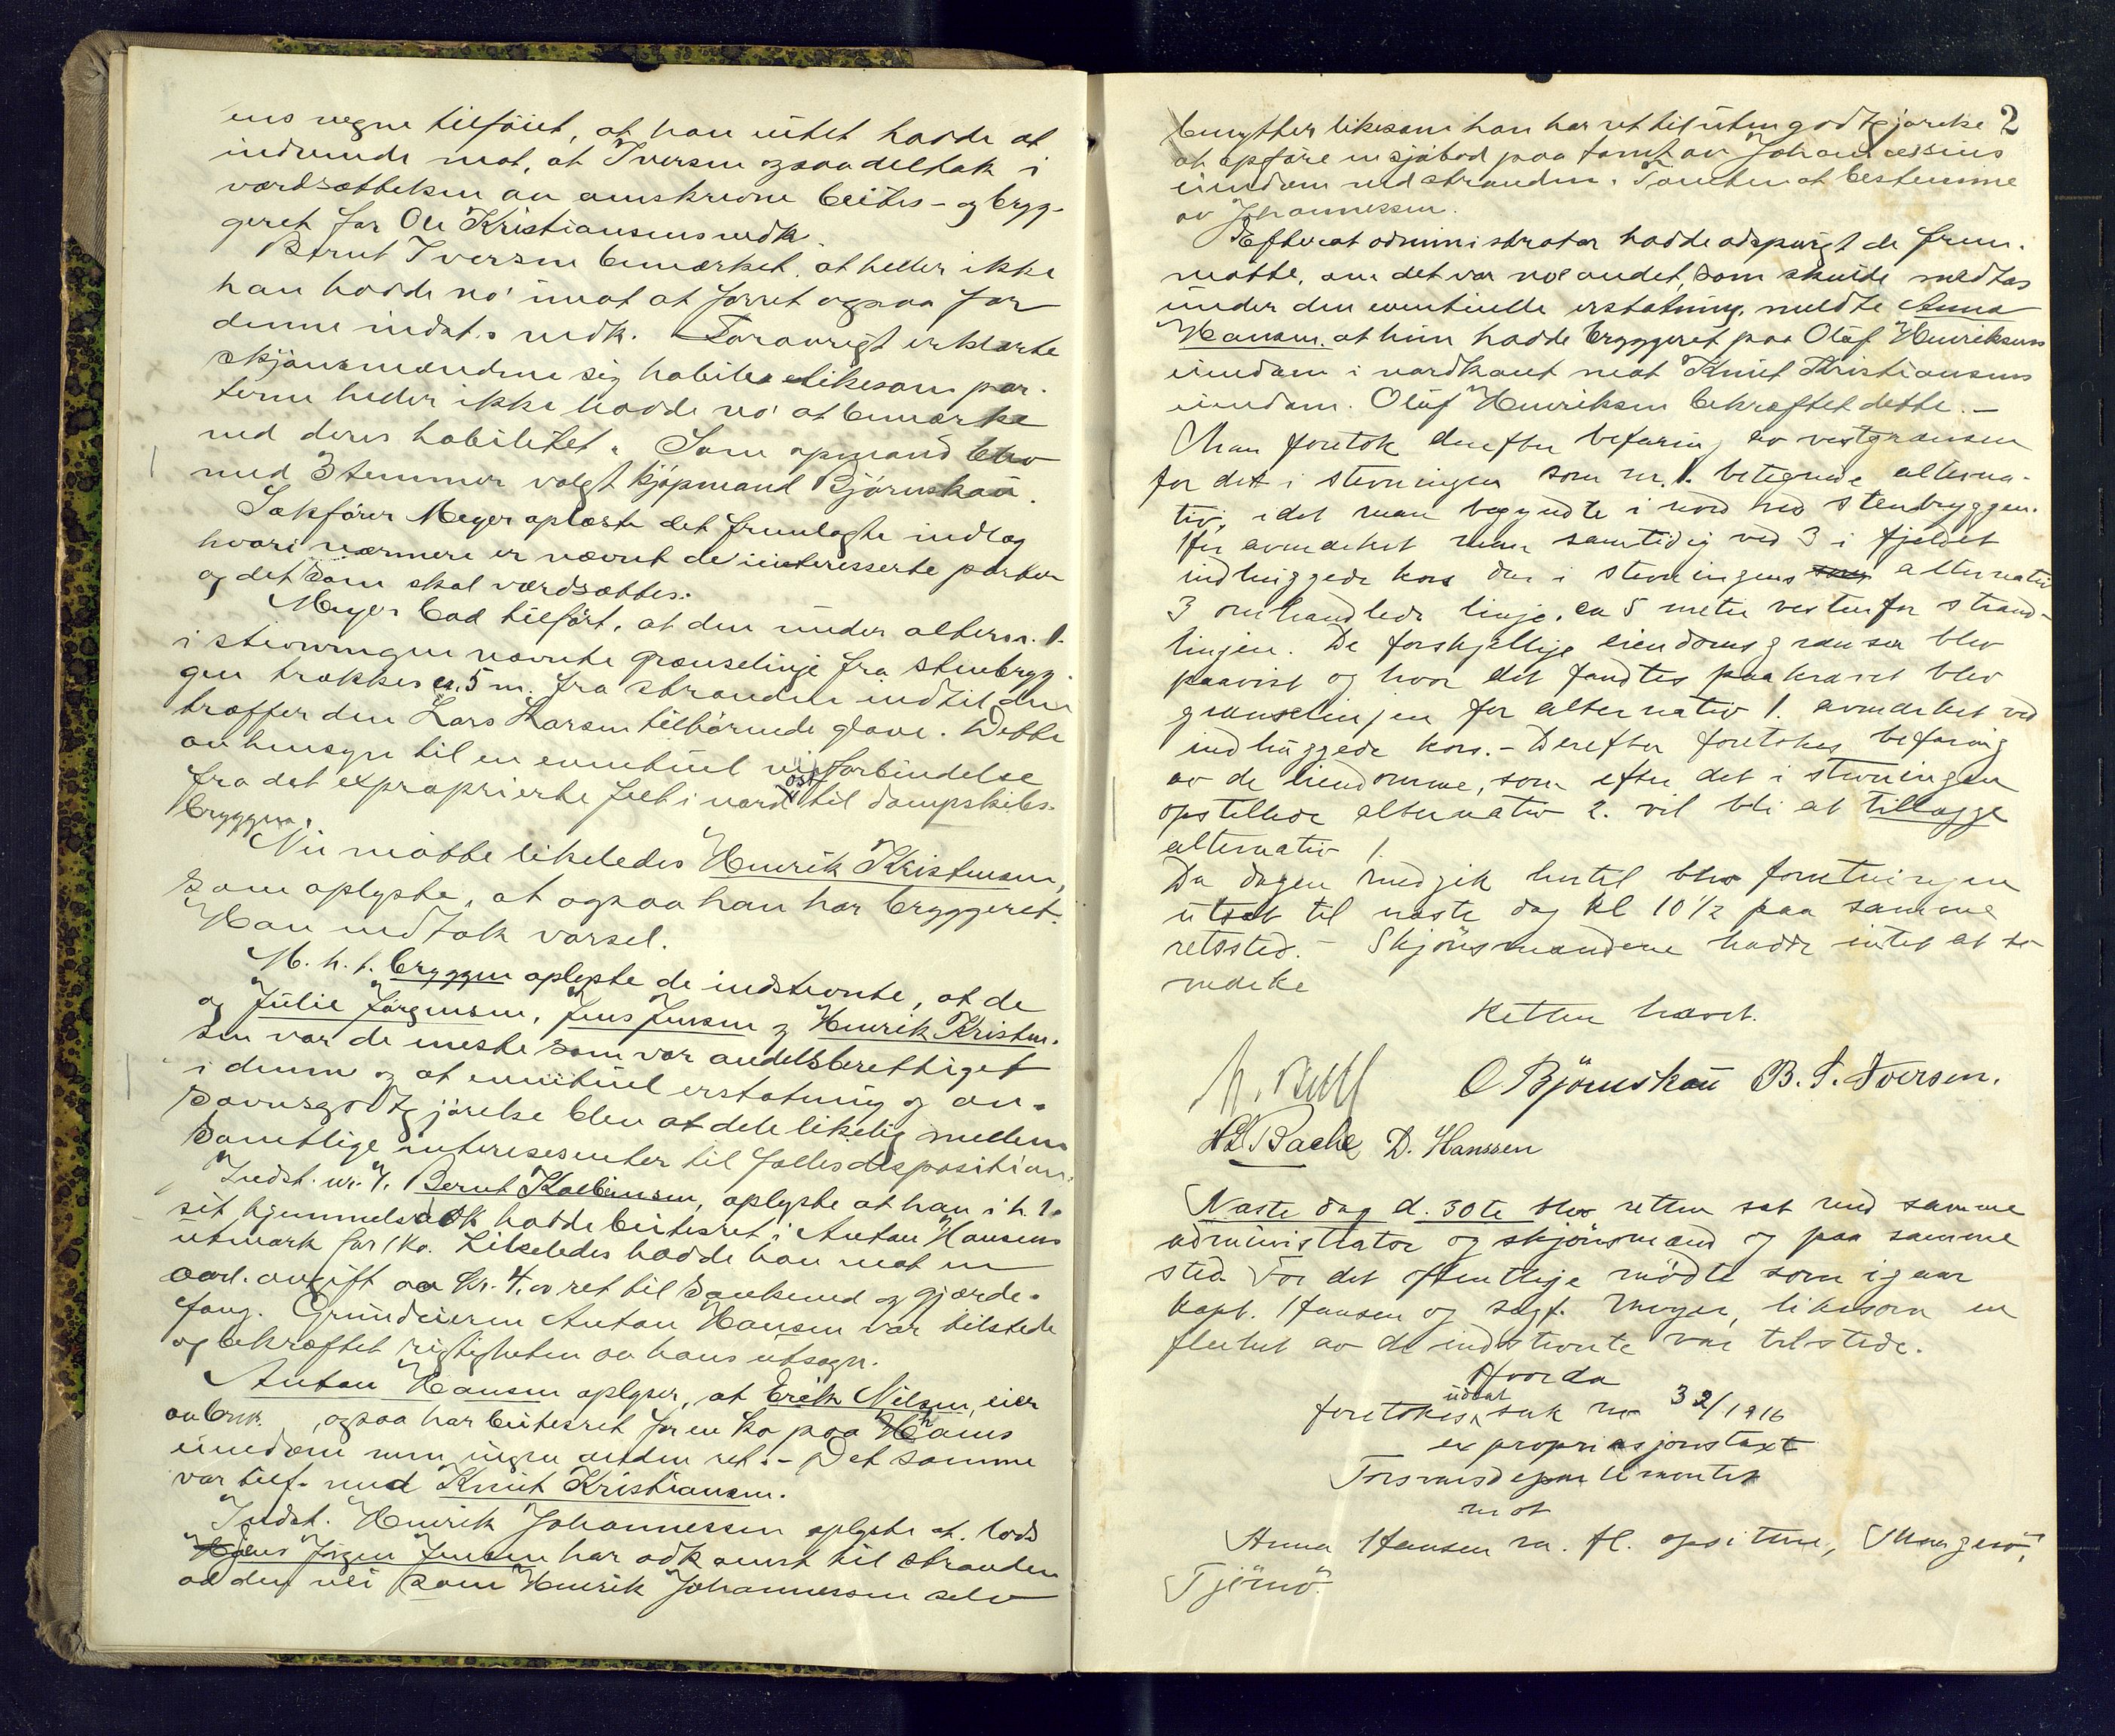 ens vegne tilføiet, at han intet hadde at
indvende mot, at Iversen ogsaa deltok i
værdsættelsen av omskrevne beites- og bryg-
geret for Ole Kristiansens vedk.
Bernt Iversen bemerket, at heller ikke
han hadde no' imot at forret ogsaa for
denne indst.s vedk. Forøvrigt erklærte
skjønsmændene sig habile likesom par-
terne heller ikke hadde no' at bemerke
ved deres habilitet. Som opmand blev
med 3 stemmer valgt kjøpmand Björnskau.
Sakfører Meyer oplæste det fremlagte indlæg
hvori nærmere er nævnt de interesserte parter
og det som skal værdsættes.
Meyer bad tilført, at den under altern. 1.
i stevningen nævnte grænselinje fra stenbryg-
gen trækkes ca. 5 m. fra stranden indtil den
træffer den Lars Larsen tilhørende grave. Dette
av hensyn til en eventuel veiforbindelse
fra det exproprierte felt i nord øst til dampskibs-
bryggen.
Nu møtte likeledes Henrik Kristensen,
som oplyste, at ogsaa han har bryggeret.
Han vedtok varsel.
M. h. t. bryggen oplyste de indstevnte, at de
og Julie Jörgensen, Jens Jensen og Henrik Kristen-
sen var de eneste som var andelsberettiget
i denne og at eventuel erstatning og av-
savnsgodtgjørelse blev at dele likelig mellem
samtlige interesenter til fælles disposition.
Indst. nr. 4. Bernt Kolbensen, oplyste at han i h.t.
sit hjemmelsdok hadde beitesret i Anton Hansens
utmark for 1 ko. Likeledes hadde han mot en
aarl. avgift av Kr. 4,00 ret til sankeved og gjærde-
fang. Grundeieren Anton Hansen var tilstede
og bekræftet rigtigheten av hans utsagn.
Anton Hansen oplyser, at Erik Nilsen, eier
av brnr. , ogsaa har beitesret for en ko paa hans
eiendom men ingen anden ret. - Det samme
var tilf. med Knut Kristiansen.
Indst. Henrik Johannessen oplyste at baade
Hans Jörgen Jensen har adkomst til stranden
ad den vei som Henrik Johannessen selv
2
benytter likesom han har ret til uten godtgjørelse
at opføre en sjøbod paa tomt av Johannessens
eiendom ved stranden. Tomten at bestemme
av Johannessen.
Efterat administrator hadde adspurgt de frem-
møtte, om det var noe andet, som skulde medtas
under den eventuelle erstatning, meldte Anna
Hansen, at hun hadde bryggeret paa Olaf Henriksens
eiendom i nordkant mot Knut Kristiansens
eiendom. Olaf Henriksen bekræftet dette. -
Man foretok derefter befaring av vestgrænsen
for det i stevningen som nr. 1. betegnede alterna-
tiv, idet man begyndte i nord ved stenbryggen.
Her avmerket man samtidig ved 3 i fjeldet
indhuggede kors den i stevningens alternativ
3 omhandlede linje, ca 5 meter vestenfor strand-
linjen. De forskjellige eiendomsgrænser blev
paavist og hvor det fandtes paakrævet blev
grænselinjen for alternativ 1. avmerket ved
indhuggede kors. - Derefter foretokes befaring
av de eiendomme, som efter det i stevningen
opstillede alternativ 2. vil bli at tillægge
alternativ 1.
Da dagen medgik hertil blev forretningen
utsat til næste dag kl 10 1/2 paa samme
retssted. - Skjønsmændene hadde intet at be-
merke
Retten hævet.
O Björnskau B. I. Iversen.
H L Bache D. Hanssen
Næste dag d. 30te blev retten sat med samme
administrator og skjønsmænd og paa samme
sted. For det offentlige mødte som igaar
kapt. Hansen og sagf. Meyer, likesom en
flerhet av de indstevnte var tilstede.
Hvorda
foretokes utsat sak nr 32/1916
expropriasjonstaxt
Forsvarsdepartementet
mot
Anna Hansen m. fl. opsittere, Mågerö,
Tjømø.